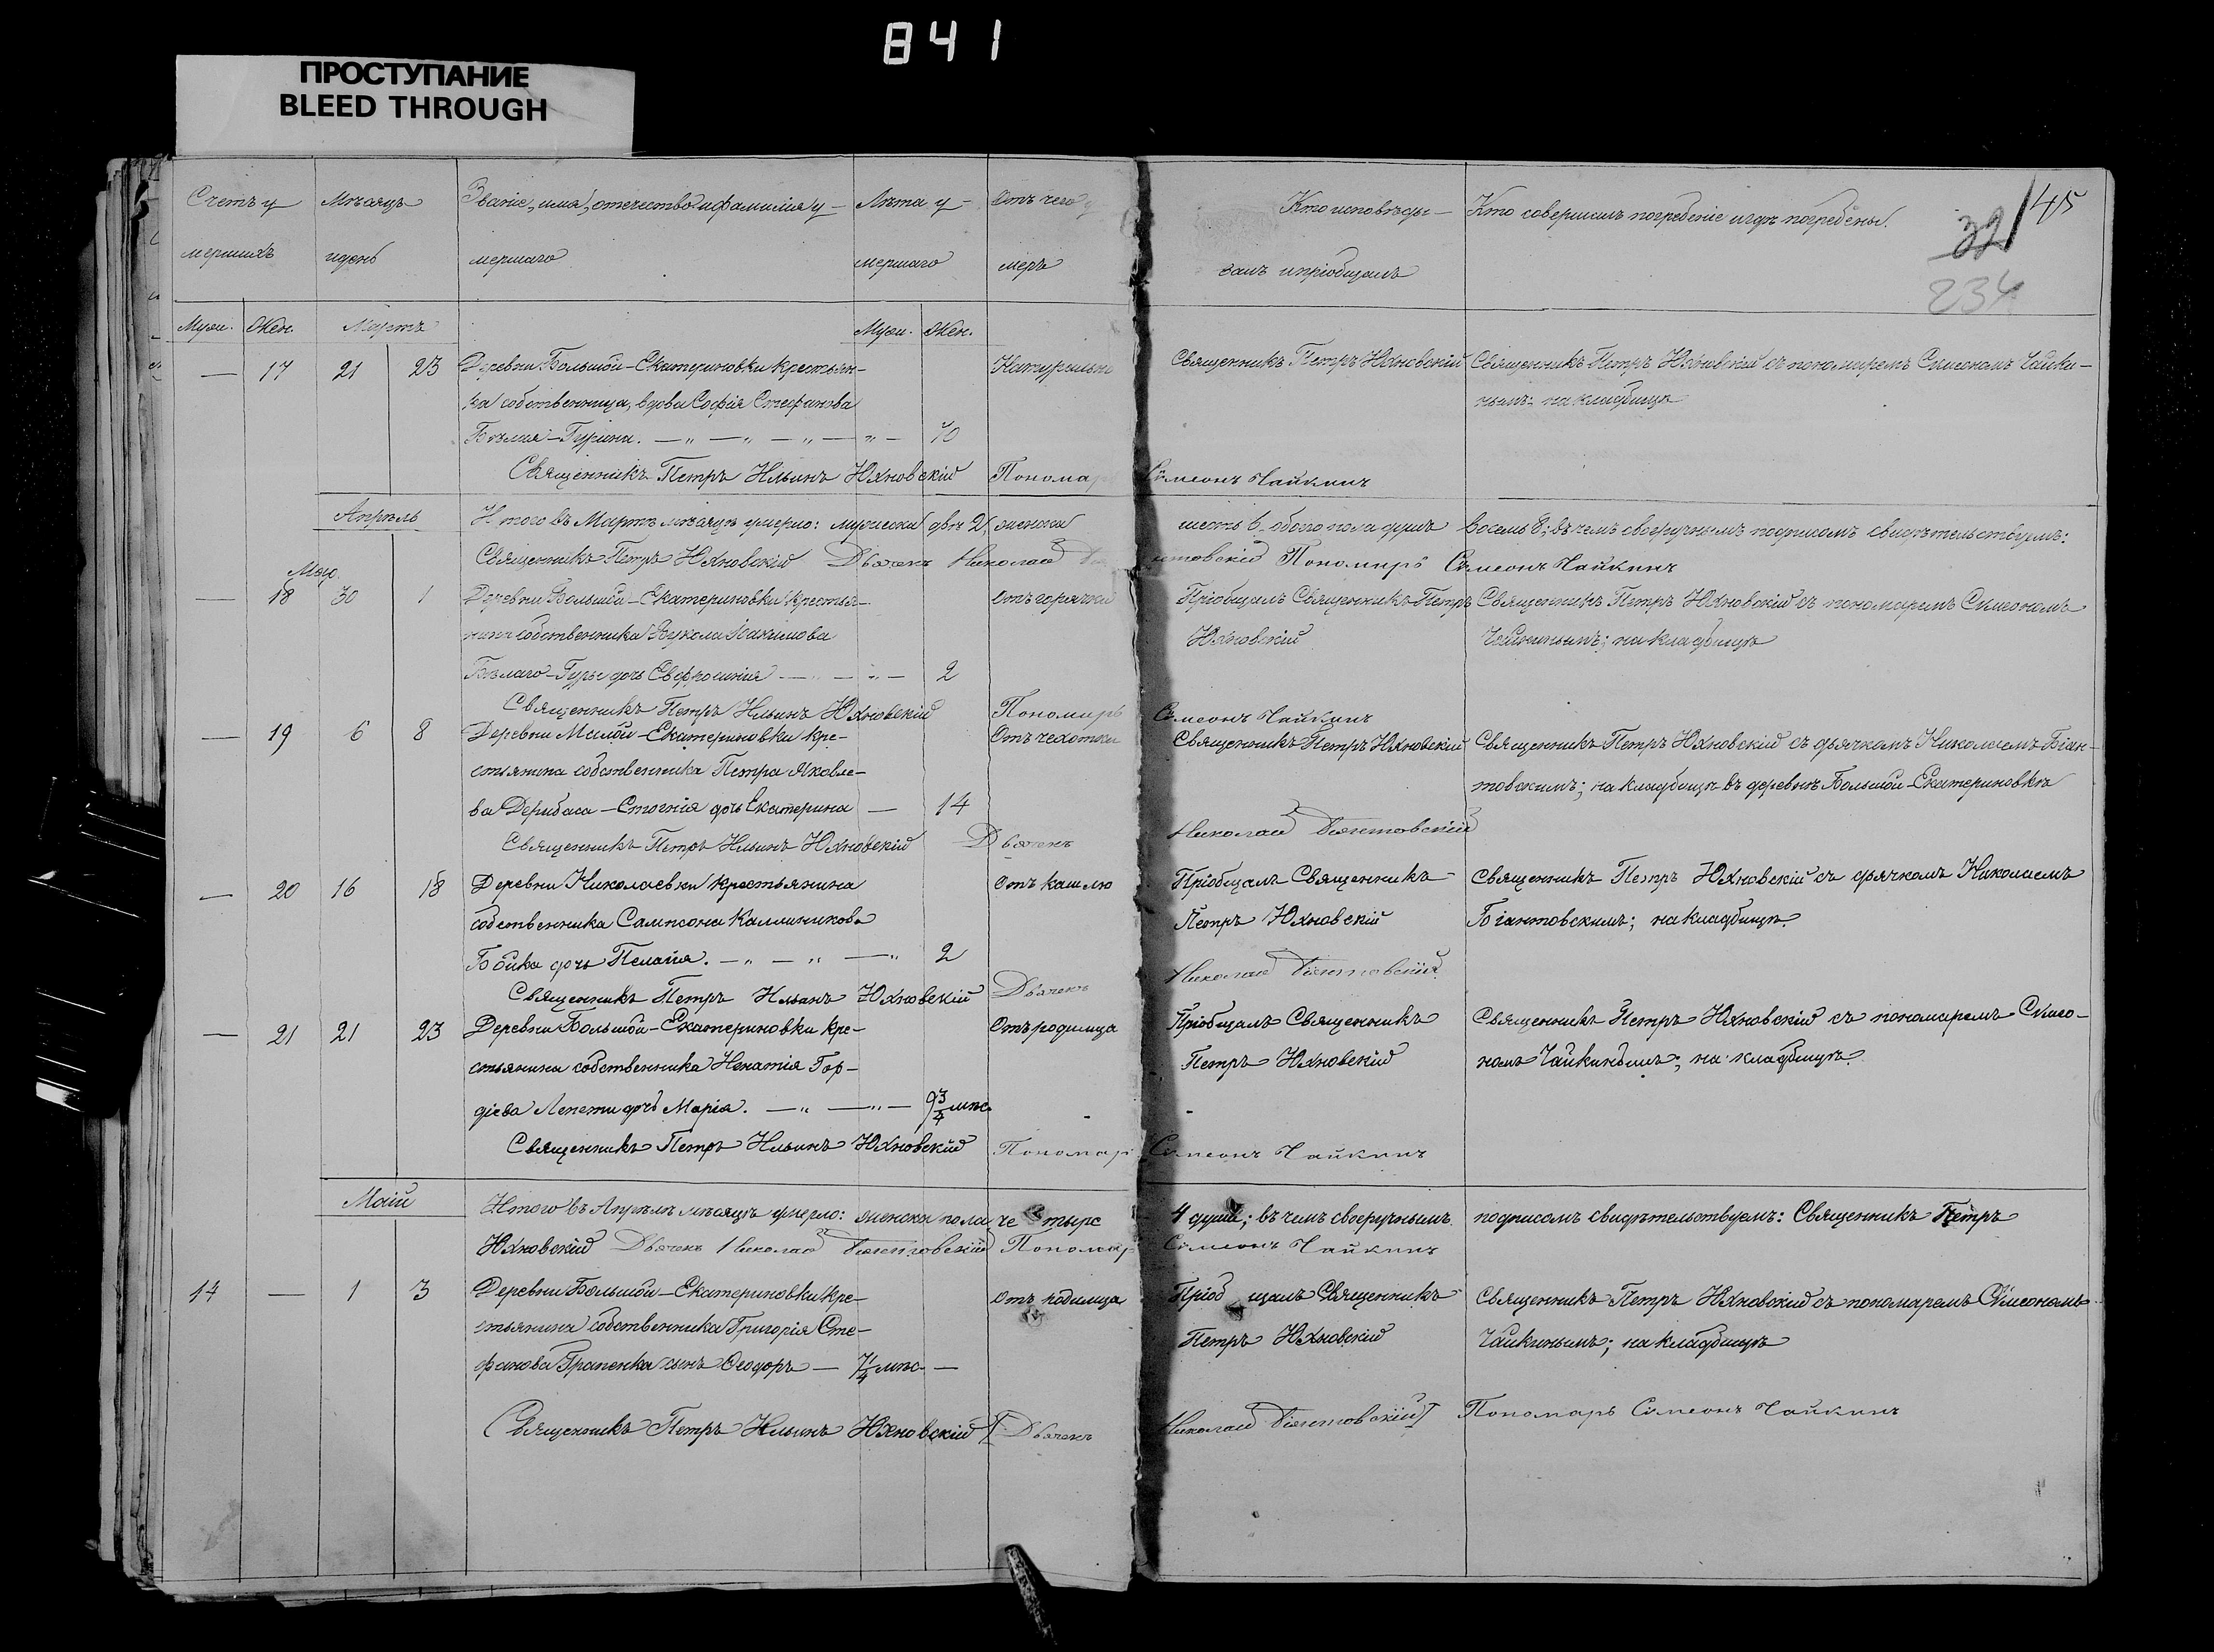 841
ПРОСТУПАНИЕ
BLEED THROUGH
Счетъ у
мершихъ
Мѣсяцъ
и день
Званіе, имя, отечество и фамилія у-
мершаго
Лѣта у-
мершаго
Отъ чего у
меръ
Кто исповѣды-
валъ и пріобщалъ
Кто совершилъ погребеніе и гдѣ погребены.
32
145
234
Муж. Жен. Мартъ Муж. Жен.
— 17 21 23 Деревни Большой-Екатериновки крестьян- Натурально Священникъ Петръ Юхновскій Священникъ Петръ Юхновскій съ пономаремъ Симеономъ Чайки-
ка собственница, вдова Софія Стефанова нымъ: на кладбищѣ
Бѣлая-Гурина. — „ — „ — „ — „ — 70
Священникъ Петръ Ильинъ Юхновскій Пономар Симеонъ Чайкинъ
Апрѣль
Итого въ Мартѣ мѣсяцѣ умерло: мужеска двѣ 2, женска шесть 6 обоего пола душъ восемь 8; въ чемъ своеручнымъ подписомъ свидѣтельствуемъ:
Священникъ Петръ Юхновскій Дьячекъ Николай Пономарь Симеонъ Чайкинъ
Маю
— 18 30 1 Деревни Большой-Екатериновки крестья- Отъ горячки Пріобщалъ Священникъ Петръ Священникъ Петръ Юхновскій съ пономаремъ Симеономъ
нина собственника Вукола Іоакимова Юхновскій Чайкинымъ; на кладбищѣ
Бѣлаго-Гурье дочь Евфросинія — „ — „ — 2
Священникъ Петръ Ильинъ Юхновскій Пономарь Симеонъ Чайкинъ
— 19 6 8 Деревни Малой-Екатериновки кре- Отъ чехотки Священникъ Петръ Юхновскій Священникъ Петръ Юхновскій съ дьячкомъ Николаемъ Біан-
стьянина собственника Петра Яковле- товскимъ; на кладбищѣ въ деревнѣ Большой-Екатериновкѣ
ва Дерибаса-Стогнія дочь Екатерина — 14
Священникъ Петръ Ильинъ Юхновскій Дьячекъ Николай Біянтовскій
— 20 16 18 Деревни Николаевки крестьянина Отъ кашлю Пріобщалъ Священникъ Священникъ Петръ Юхновскій съ дьячкомъ Николаемъ
собственника Сампсона Каллиникова Петръ Юхновскій Біантовскимъ; на кладбищѣ.
Бойка дочь Пелагія. — „ — „ — „ 2
Священникъ Петръ Ильинъ Юхновскій Дьячекъ Николай Біянтовскій
— 21 21 23 Деревни Большой-Екатериновки кре- Отъ родимца Пріобщалъ Священникъ Священникъ Петръ Юхновскій съ пономаремъ Симео-
стьянина собственника Игнатія Гор- Петръ Юхновскій номъ Чайкинымъ; на кладбищѣ.
діева Лепети дочь Марія. — „ — „ — 9 3/4 мѣс.
Священникъ Петръ Ильинъ Юхновскій Пономар Симеонъ Чайкинъ
Маій
Итого въ Апрѣлѣ мѣсяцѣ умерло: женска пола четыре 4 души; въ чемъ своеручнымъ подписомъ свидѣтельствуемъ: Священникъ Петръ
Юхновскій Дьячекъ Николай Біянтовскій Пономар Симеонъ Чайкинъ
14 — 1 3 Деревни Большой-Екатериновки кре- Отъ родимца Пріобщалъ Священникъ Священникъ Петръ Юхновскій съ пономаремъ Симеономъ
стьянина собственника Григорія Сте- Петръ Юхновскій Чайкинымъ; на кладбищѣ
фанова Грапенка сынъ Ѳеодоръ — 7 1/4 мѣс. —
Священникъ Петръ Ильинъ Юхновскій Дьячекъ Николай Біянтовскій Пономарь Симеонъ Чайкинъ